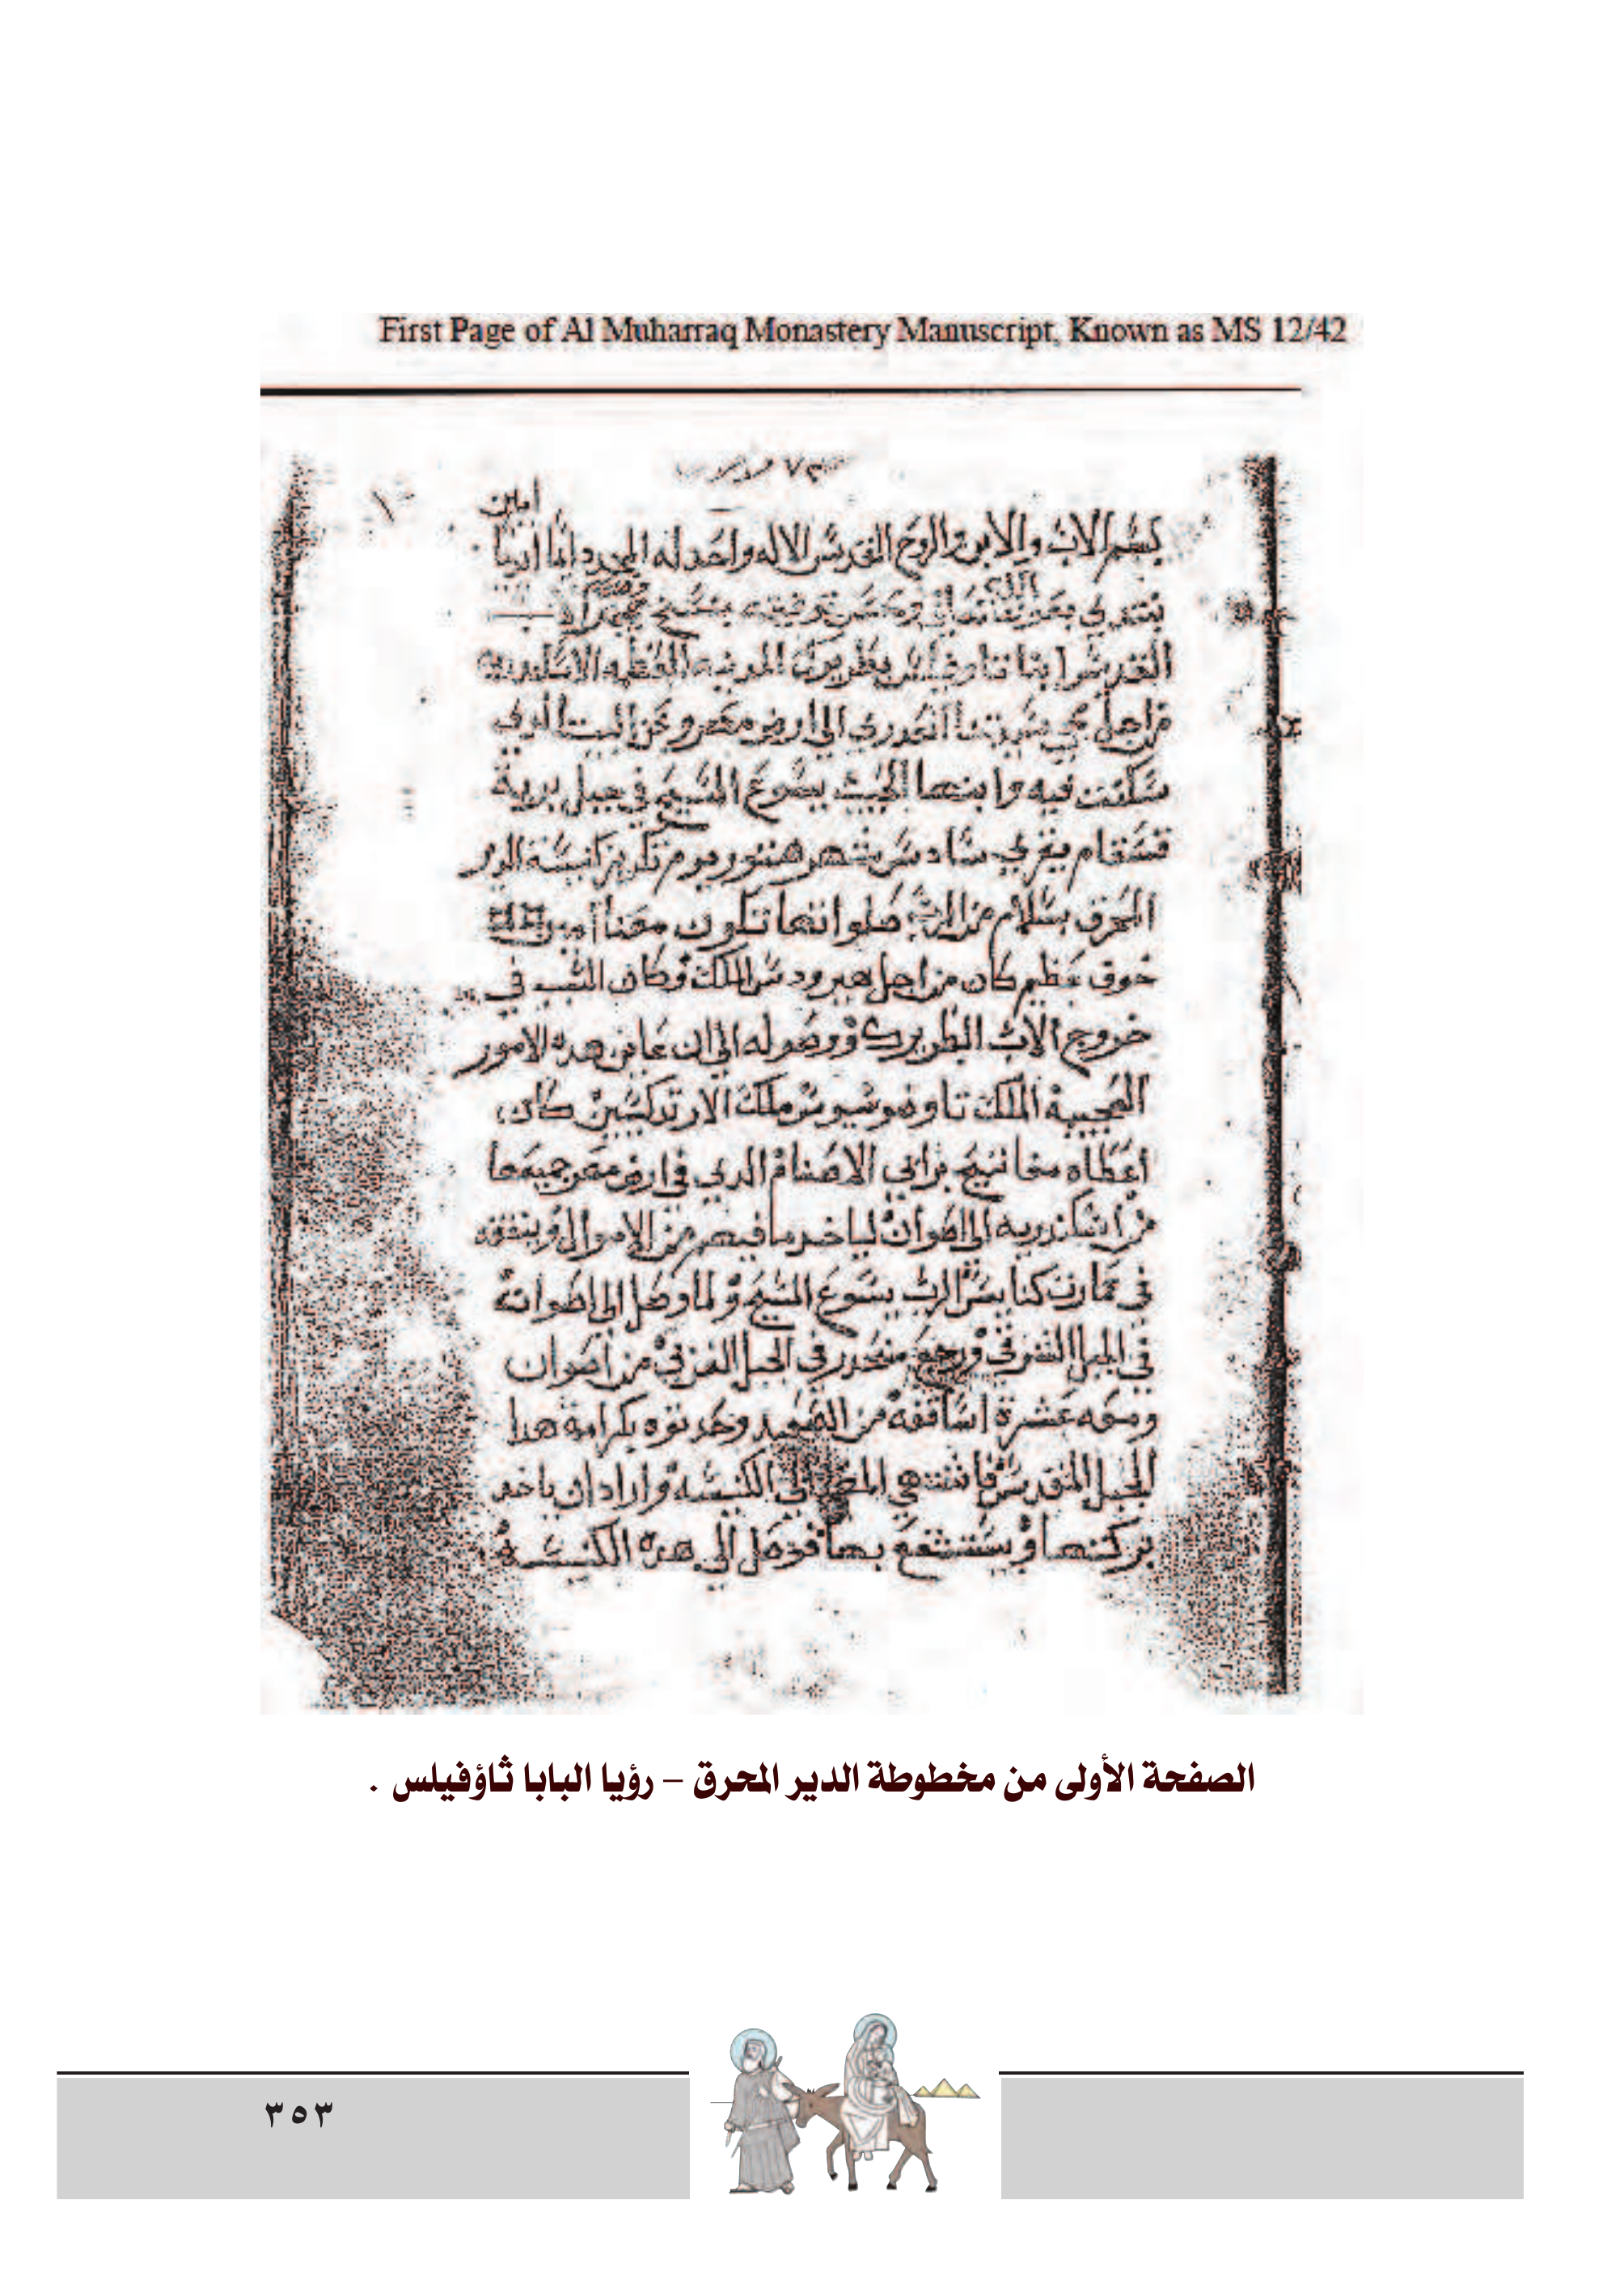 First Page of Al Muharraq Monastery Manuscript, Known as MS 12/42
١
امين
بسم الاب والابن والروح القدس الاله واحد له المجد دايما ابديا
نبتدي بعون الله تعالى وحسن توفيقه بنسخ
القدس ابنا تاوفيلس بطريرك المدينه العظمه الاسكندريه
من اجل مجي سيدتنا العدري الى ارض مصر وعن البيت الدي
سكنت فيه وابنها الحبيب يسوع المسيح في جبل برية
قسقام يقري سادس شهر هتور يوم تكريز كنيسة الدير
المحرق بسلام من الرب صلواتها تكون معنا امين
خوف عظيم كان من اجل هيرودس الملك وكان السبب في
خروج الاب البطريرك ووصوله الى ان عاين هده الامور
العجيبة الملك تاوضوسيوس ملك الارتدكسيين كان
اعطاه مفاتيح برابي الاصنام الدي في ارض مصر جميعها
من اسكندريه الى اصوان لياخد ما فيهم من الاموال وينفقه
في عمارت كنايس الرب يسوع المسيح ولما وصل الى اصوان
في الجبل الشرقي ورجع منحدر في الجبل الغربي من اصوان
ومعه عشرة اساقفه من الصعيد وحدتوه بكرامة هدا
الجبل المقدس فاشتهي المضي الى الكنيسه واراد ان ياخد
بركتها ويستنفع بها فوصل الى هده الكنيسة
الصفحة الأولى من مخطوطة الدير المحرق – رؤيا البابا ثاؤفيلس .
٣٥٣